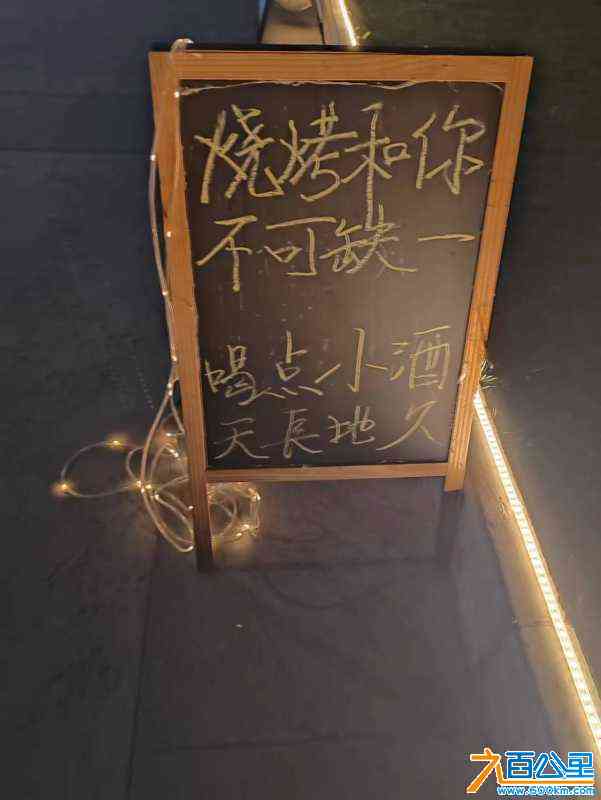 烧烤和你
不可缺一
喝点小酒
天長地久
九百公里
www.900km.com